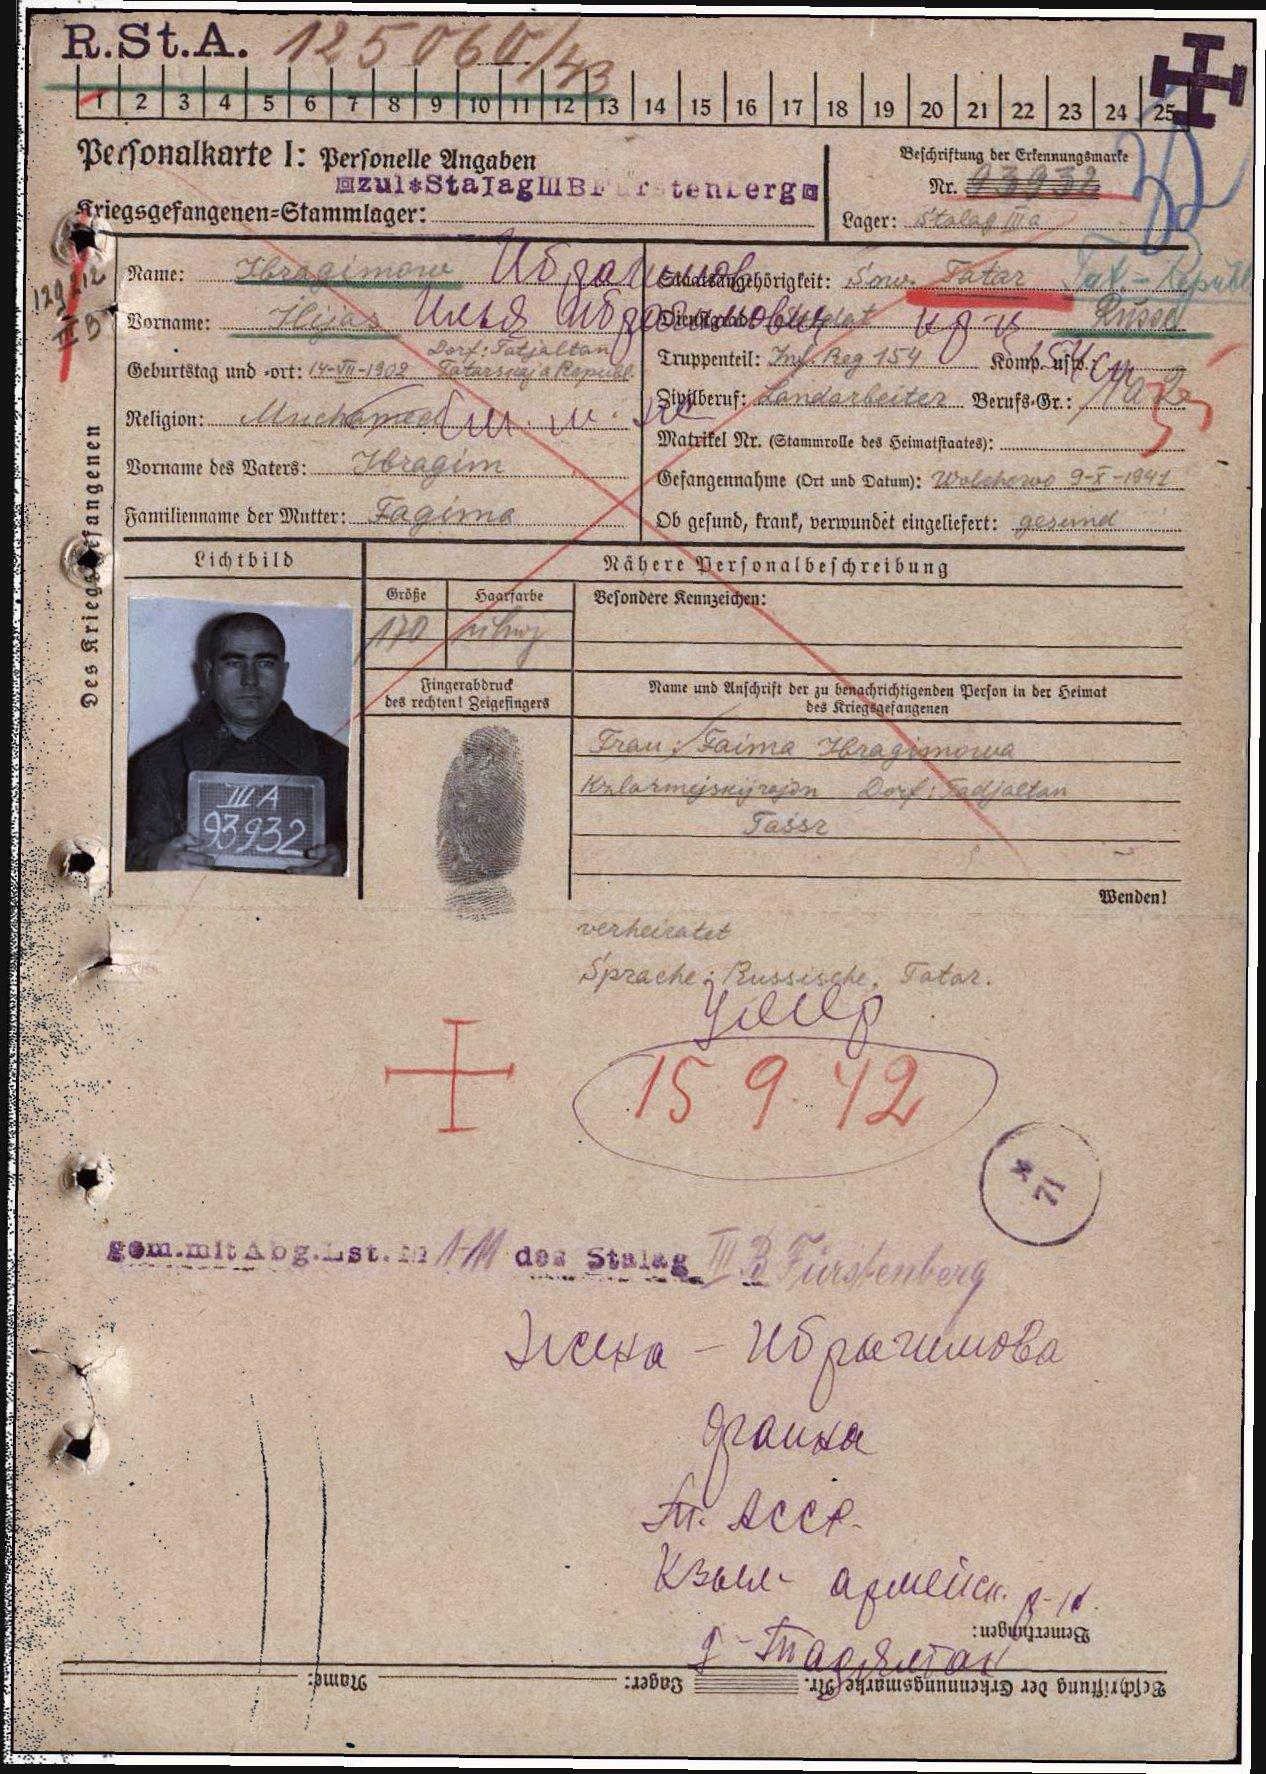 R.St.A. 125060/43
1 2 3 4 5 6 7 8 9 10 11 12 13 14 15 16 17 18 19 20 21 22 23 24 25
Personalkarte I: Personelle Angaben
zul*Stalag III B Fürstenberg
Kriegsgefangenen-Stammlager:
Beschriftung der Erkennungsmarke
Nr. 93932
Lager: Stalag III a
129212
II B
Des Kriegsgefangenen
Name: Ibragimow Ибрагимов
Vorname: Iljas Илья Ибрагимович
Geburtstag und -ort: 14-VII-1902 Dorf: Tatjaltan Tatarskaja Republ.
Religion: Muchamed
Vorname des Vaters: Ibragim
Familienname der Mutter: Fagima
Staatsangehörigkeit: Sow. Tatar Tat.-Republ
Dienstgrad: Soldat Russe
Truppenteil: Inf. Reg 154 Komp. usw.:
Zivilberuf: Landarbeiter Berufs-Gr.:
Matrikel Nr. (Stammrolle des Heimatstaates):
Gefangennahme (Ort und Datum): Wolchowo 9-X-1941
Ob gesund, krank, verwundet eingeliefert: gesund
Lichtbild
III A
93932
Nähere Personalbeschreibung
Größe Haarfarbe Besondere Kennzeichen:
170
Fingerabdruck
des rechten! Zeigefingers
Name und Anschrift der zu benachrichtigenden Person in der Heimat
des Kriegsgefangenen
Frau: Faima Ibragimowa
Kzlarmejskij rajon Dorf: Tadjaltan
Tassr
Wenden!
verheiratet
Sprache: Russische, Tatar.
Умер
15 9. 42
71
gem.mit Abg.Lst. № 1-11 des Stalag III B Fürstenberg
Жена - Ибрагимова
Фаима
Т. АССР.
Кзыл- армейск. р-н.
Д - Тадялтан
Bemerkungen:
Beschriftung der Erkennungsmarke Nr. Lager: Name: